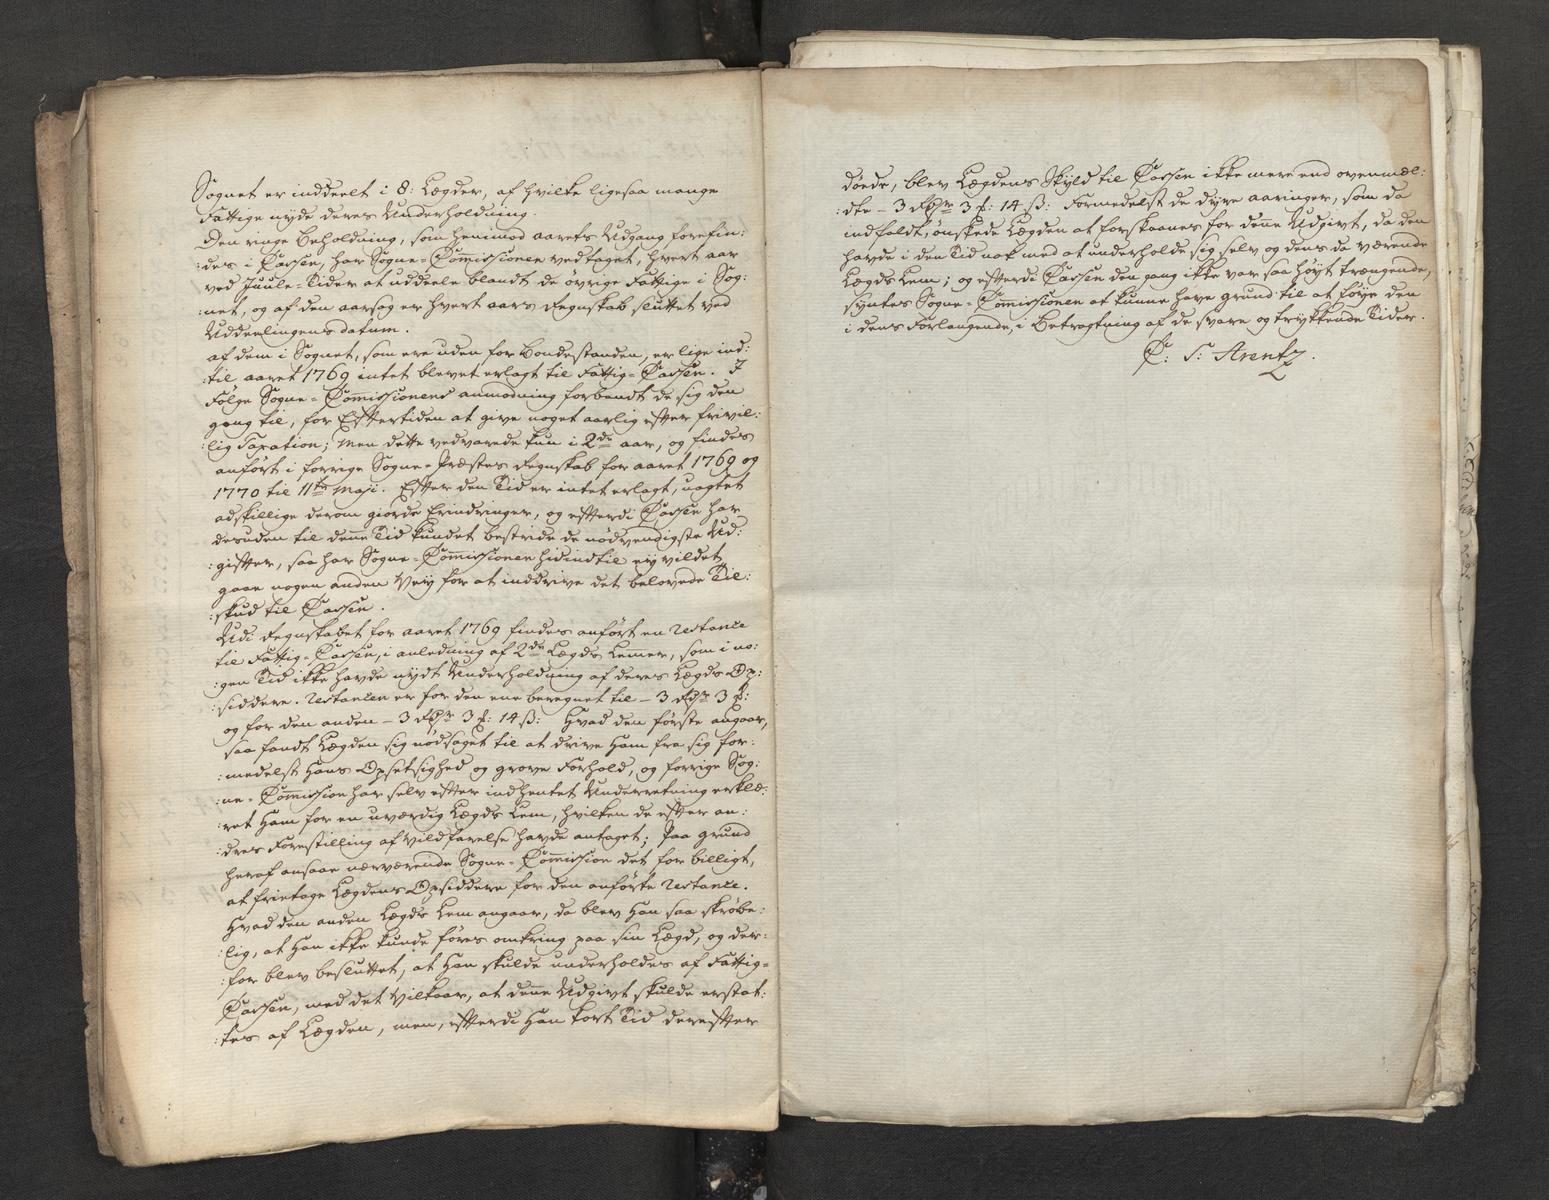 Sognet er inddeelt i 8: Lægder, af hvilke ligesaa mange
Fattige nyde deres Underholdning.
Den ringe Beholdning, som henimod aarets Udgang forefin:
:des i Cassen, har Sogne-Com̄issionen vedtaget, hvert aar
ved Juule-Tider at uddeele blandt de øvrige Fattige i Sog:
:net, og af den aarsag er hvert aars Regnskab sluttet ved
Uddeelingens datum.
af dem i Sognet, som ere uden for Bondestanden, er lige ind:
:til aaret 1769 intet blevet erlagt til Fattig-Cassen. I
Følge Sogne-Com̄issionens anmodning forbandt de sig den
gang til, for Efftertiden at give noget aarlig effter frivil:
:lig Taxation; men dette vedvarede kun i 2de aar, og findes
anført i forrige Sogne-Præstes Regnskab for aaret 1769 og
1770 til 11te Maji. Effter den Tid er intet erlagt, uagtet
adskillige derom giorde Erindringer, og effterdi Cassen har
desuden til deñe Tid kundet bestride de nødvendigste Ud:
:giffter, saa har Sogne-Com̄issionen hidindtil ey vildet
gaae nogen anden Vey for at inddrive det belovede Til:
:skud til Cassen.
Udi Regnskabet for aaret 1769 findes anført en Restance
til Fattig-Cassen, i anledning af 2de Lægds Lemer, som i no:
:gen Tid ikke havde nydt Underholdning af deres Lægds Op:
:siddere. Restancen er for den ene beregnet til - 3 Rdr 3 ₰:
og for den anden - 3 Rdr 3 ₰: 14 ß: Hvad den første angaar,
saa fandt Lægden sig nødsaget til at drive Ham fra sig for:
:medelst Hans Opsetsighed og grove Forhold, og forrige Sog:
:ne-Com̄ission har selv effter indhentet Underretning erklæ:
:ret Ham for en uværdig Lægds Lem, hvilken de effter an:
:dres Forestilling af Vildfarelse havde antaget; Paa grund
heraf ansaae nærværende Sogne-Com̄ission det for billigt,
at frietage Lægdens Opsiddere for den anførte Restance.
Hvad den anden Lægds Lem angaar, da blev Han saa skrøbe:
:lig, at Han ikke kunde føres omkring paa sin Lægd, og der:
:for blev besluttet, at Han skulde underholdes af Fattig-
Cassen, med det Vilkaar, at deñe Udgivt skulde erstat:
:tes af Lægden, men, effterdi Han kort Tid dereffter
døede, blev Lægdens Skyld til Cassen ikke mere end ovenmæl:
:dte - 3 Rdr 3 ₰: 14 ß: Formedelst de dyre aaringer, som da
indfaldt, ønskede Lægden at forskaanes for deñe Udgivt, da den
havde i den Tid nok med at underholde sig selv og dens da værende
Lægds Lem; og effterdi Cassen den gang ikke var saa høyt trængende,
syntes Sogne-Com̄issionen at kunne have grund til at føye den
i dens Forlangende, i Betragtning af de svare og trykkende Tider.
C: S: Arentz.